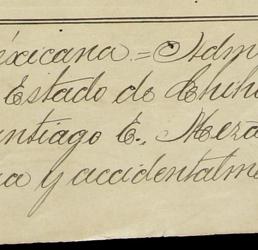 éxicana = Adm
Estado de Chih
antiago E., Meza
a y accidentalme